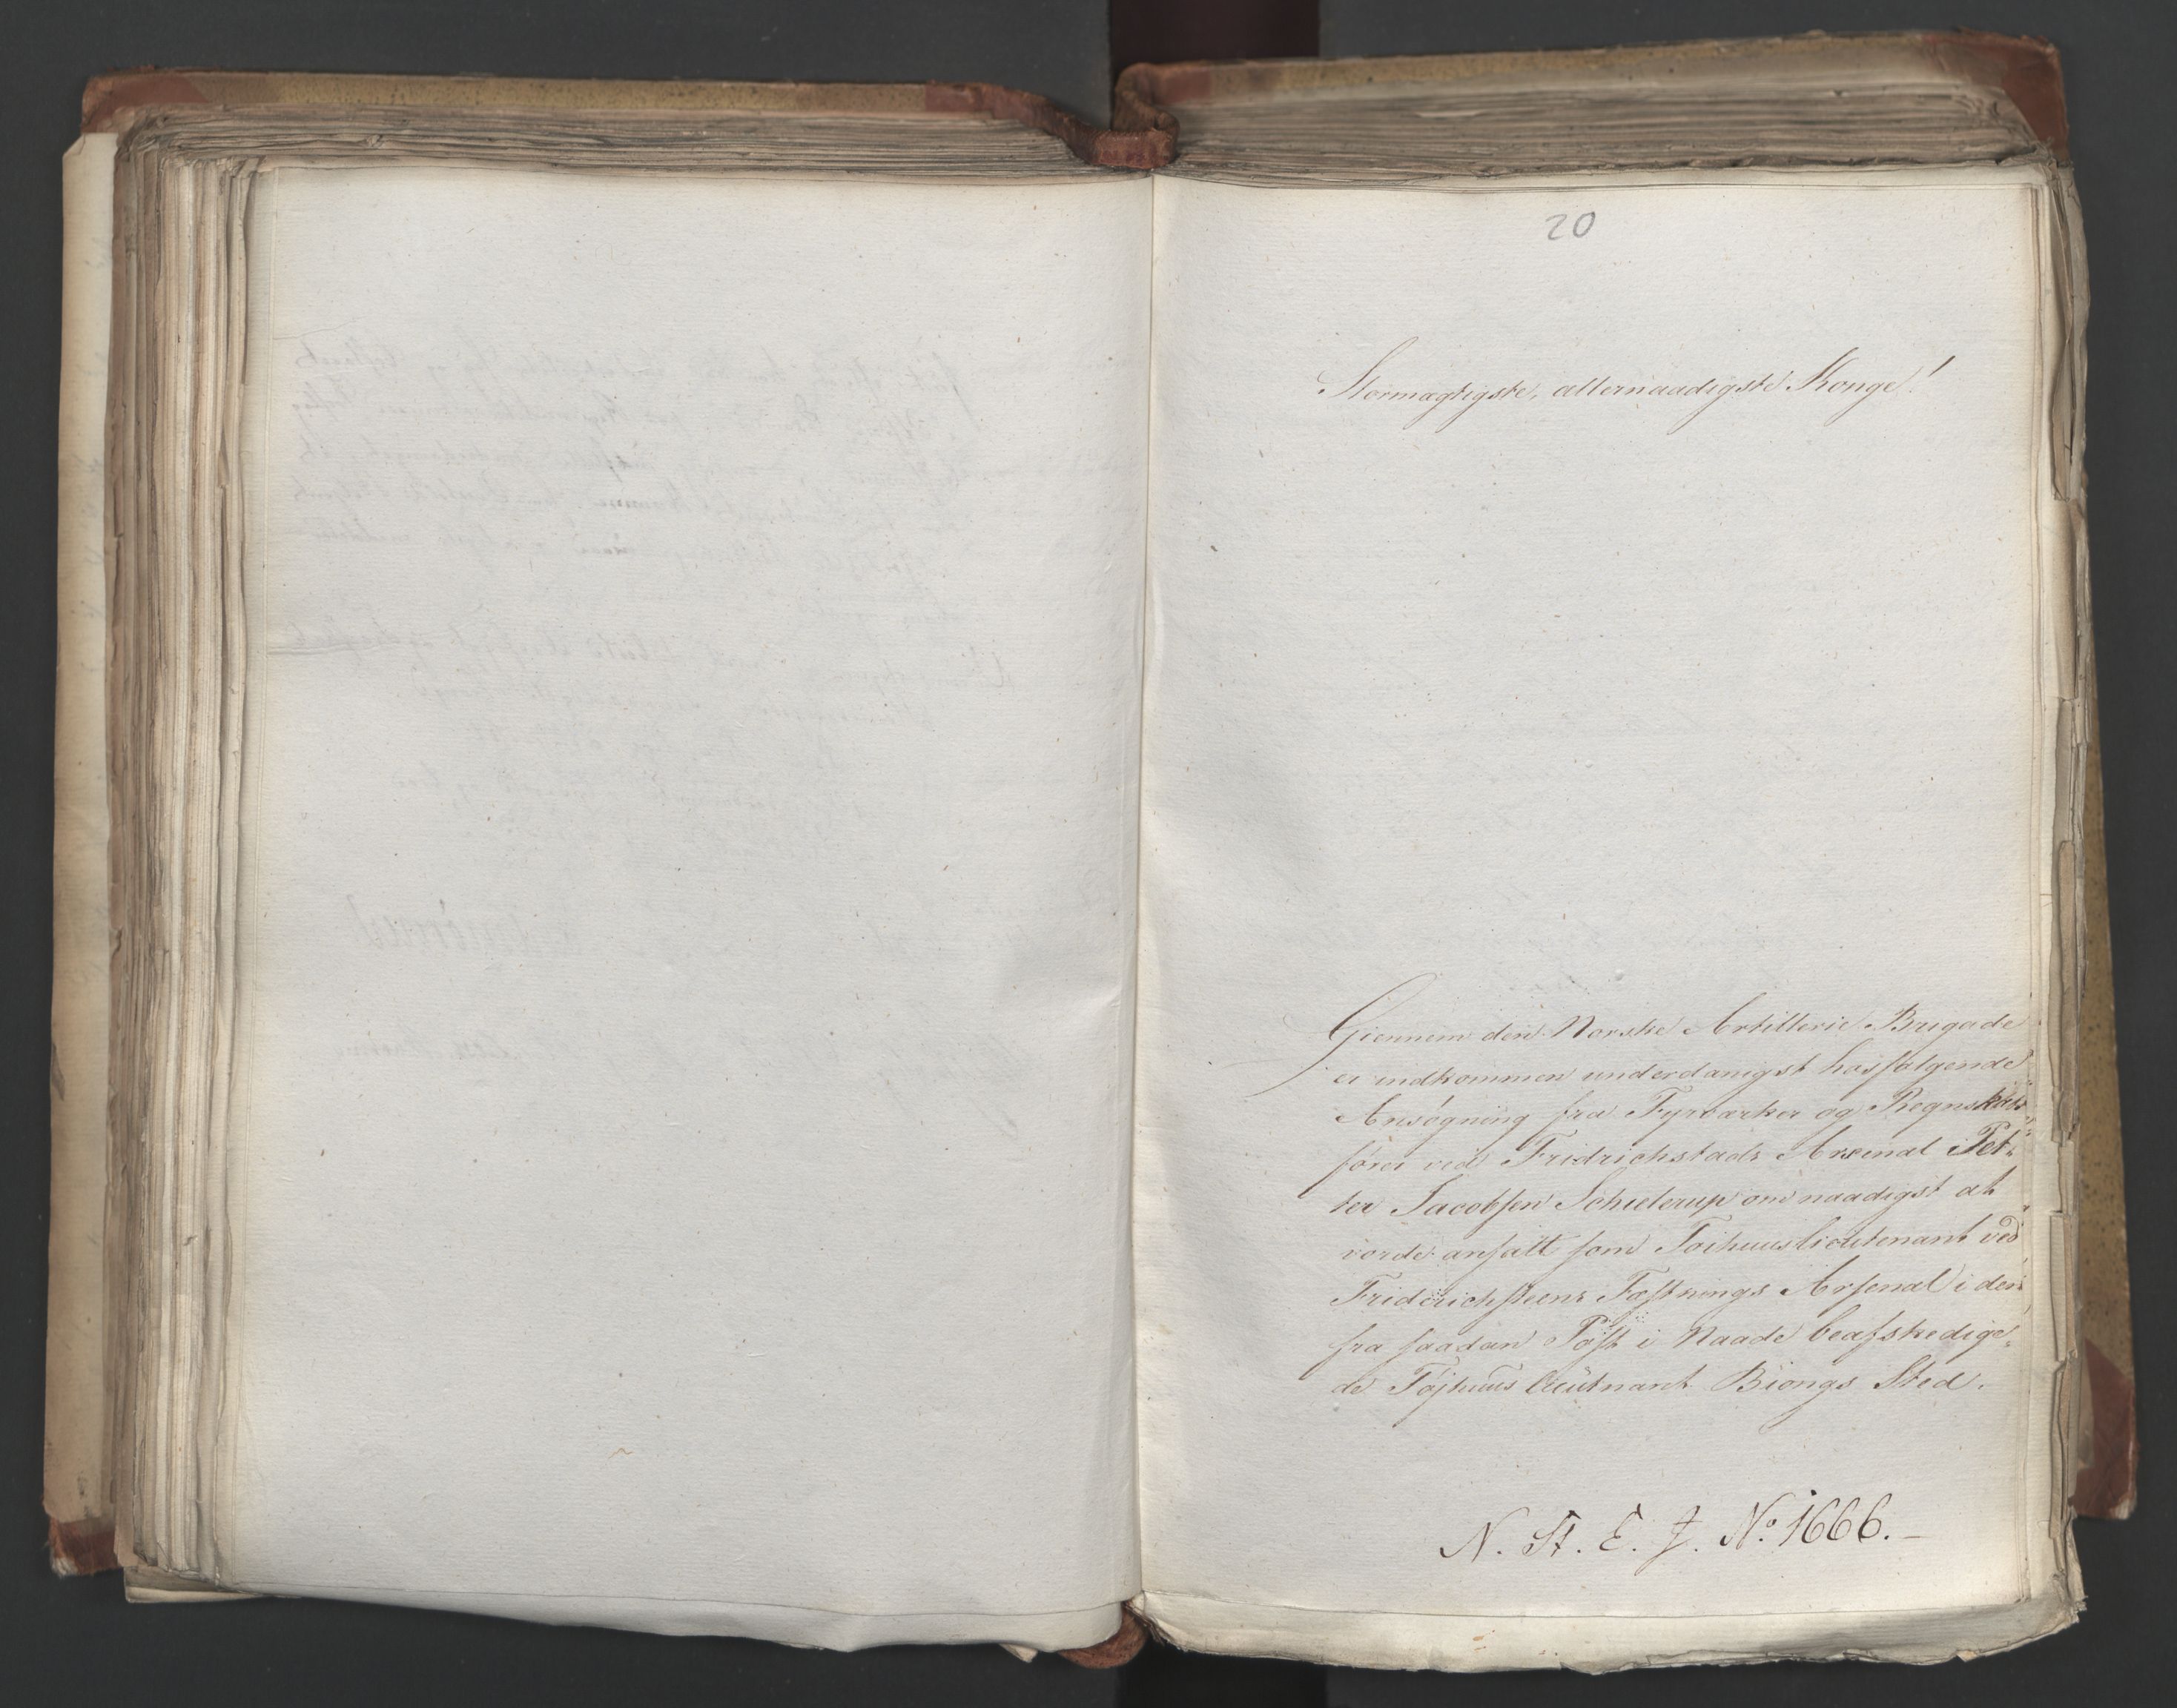 20
Stormægtigste, allernaadigste Konge!
Giennem den Norske Artillerie Brigade
er indkommen underdanigst hosfølgende
Ansøgning fra Fyrværker og Regnskabs
fører ved Fridrichstads Arsenal Pet-
ter Jacobsen Schielerup om naadigst at
vorde ansatt som Toihuuslieutenant ved
Friderichsteens Fæstnings Arsenal i den
fra saadan Post i Naade beafskedige-
de Tøjhuus lieutnant Biongs Sted.
N. St. E. J. No. 1666.-